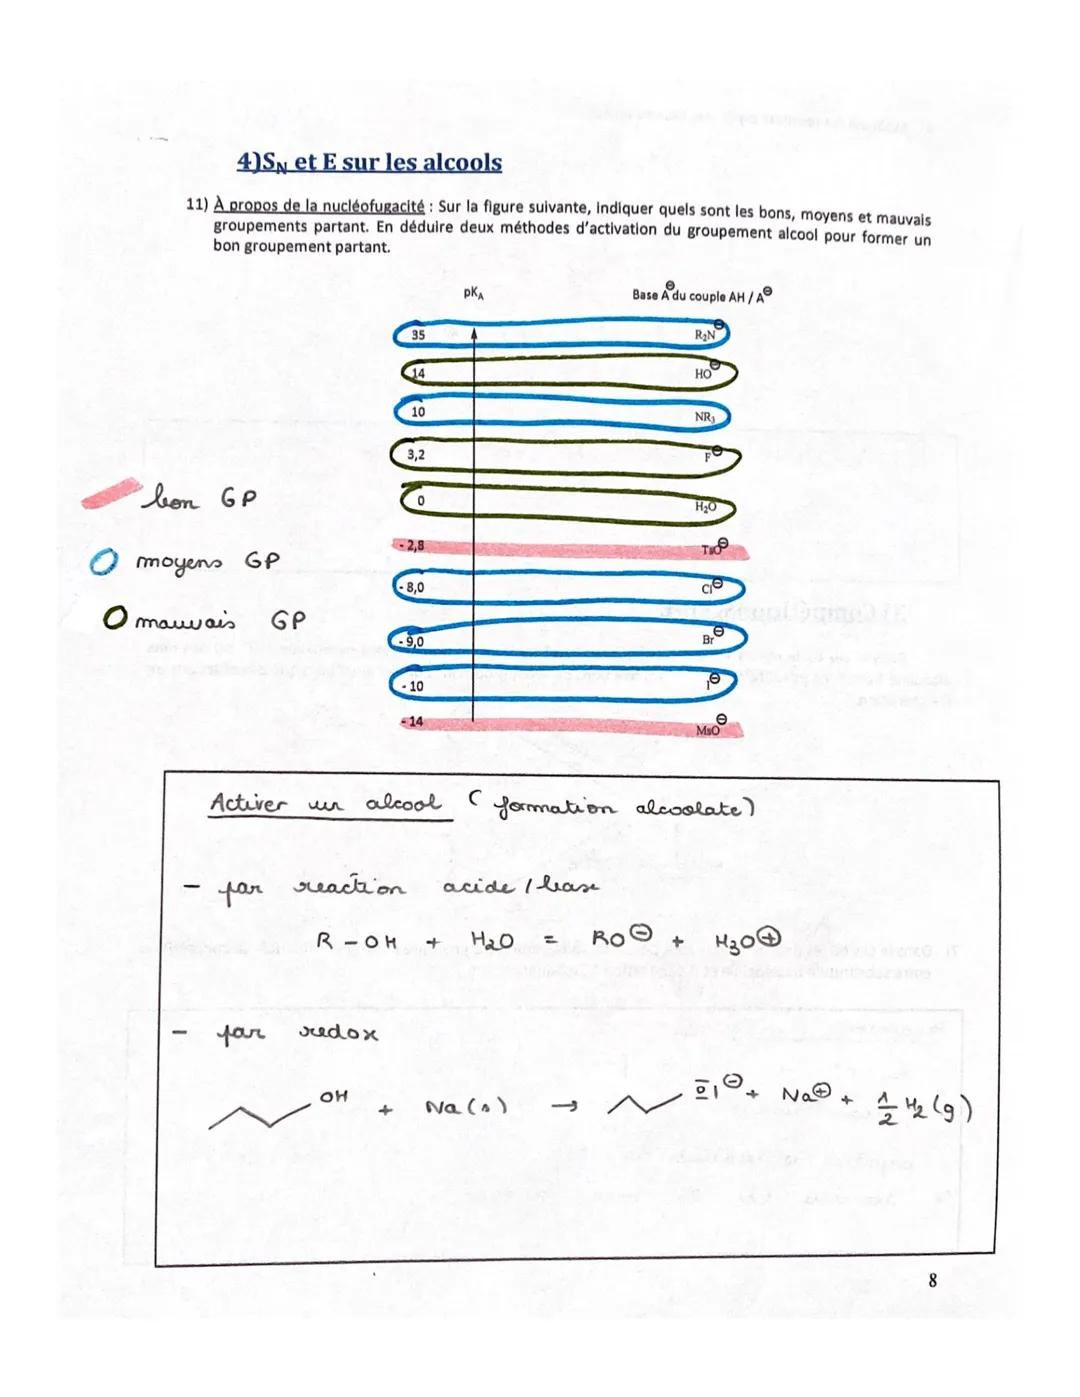 4)SN et E sur les alcools
11) À propos de la nucléofugacité : Sur la figure suivante, indiquer quels sont les bons, moyens et mauvais
groupements partant. En déduire deux méthodes d'activation du groupement alcool pour former un
bon groupement partant.
pKA Base A⊖ du couple AH / A⊖
35 R2N⊖
14 HO⊖
10 NR3
3,2 F⊖
0 H2O
- 2,8 TsO⊖
- 8,0 Cl⊖
- 9,0 Br⊖
- 10 I⊖
- 14 MsO⊖
bon GP
moyens GP
mauvais GP
Activer un alcool (formation alcoolate)
- par reaction acide / base
R - OH + H2O = RO⊖ + H3O⊕
- par redox
OH + Na(s) → O⊖ + Na⊕ + 1/2 H2(g)
8